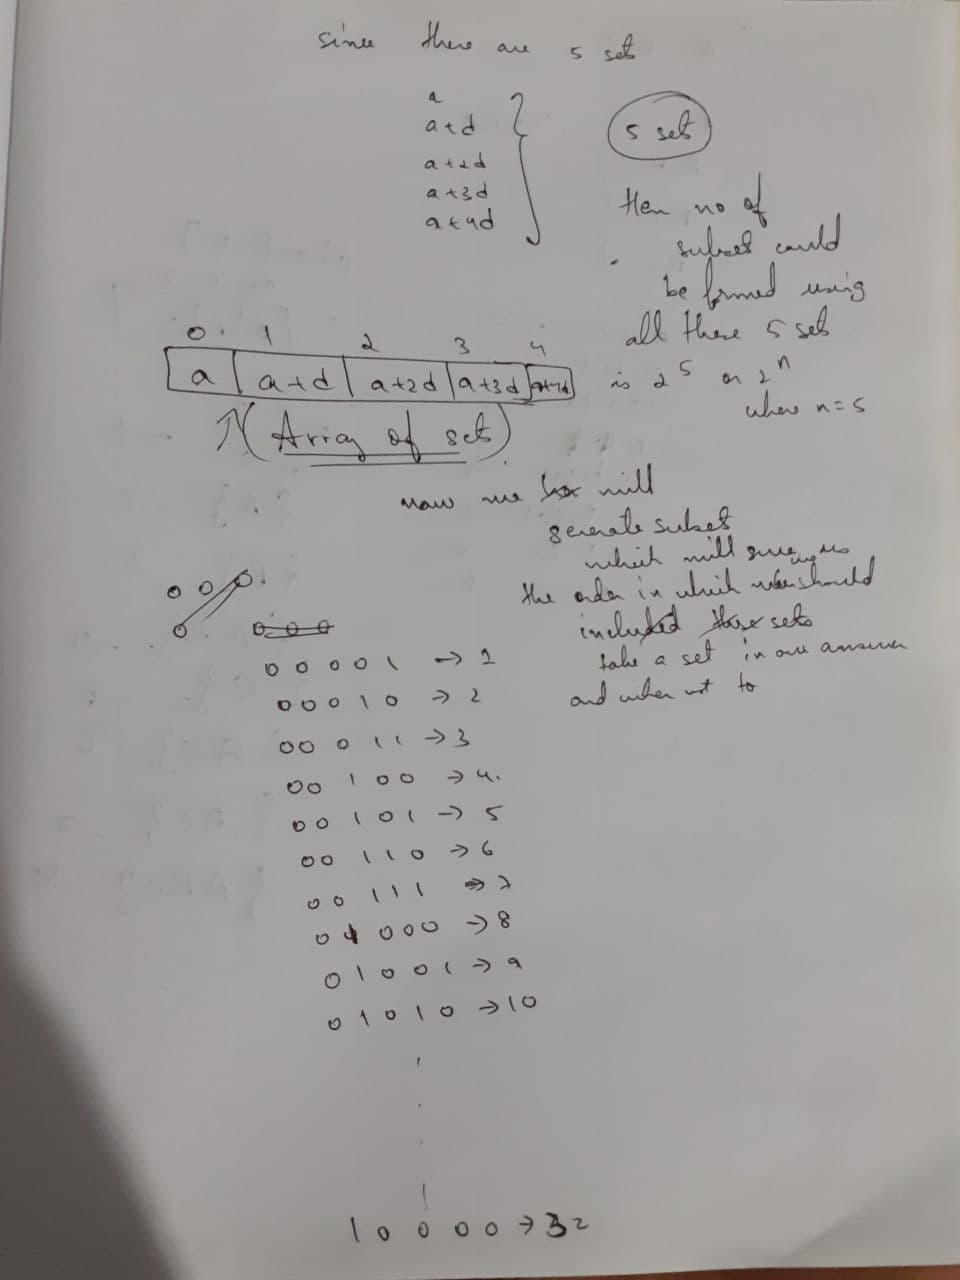 since there are 5 set
a
a+d
a+2d
a+3d
a+4d
5 set
then no of
subset could
be formed using
all these 5 set
is 2^5 or 2^n
where n=5
0 1 2 3 4
a a+d a+2d a+3d a+4d
(Array of set)
now we will
generate subset
which will give us
the order in which we should
included these sets
take a set in our answer
and when not to
0 0 0
0
0 0 0
0 0 0 0 1 → 1
0 0 0 1 0 → 2
0 0 0 1 1 → 3
0 0 1 0 0 → 4.
0 0 1 0 1 → 5
0 0 1 1 0 → 6
0 0 1 1 1 → 7
0 1 0 0 0 → 8
0 1 0 0 1 → 9
0 1 0 1 0 → 10
1 0 0 0 0 → 32